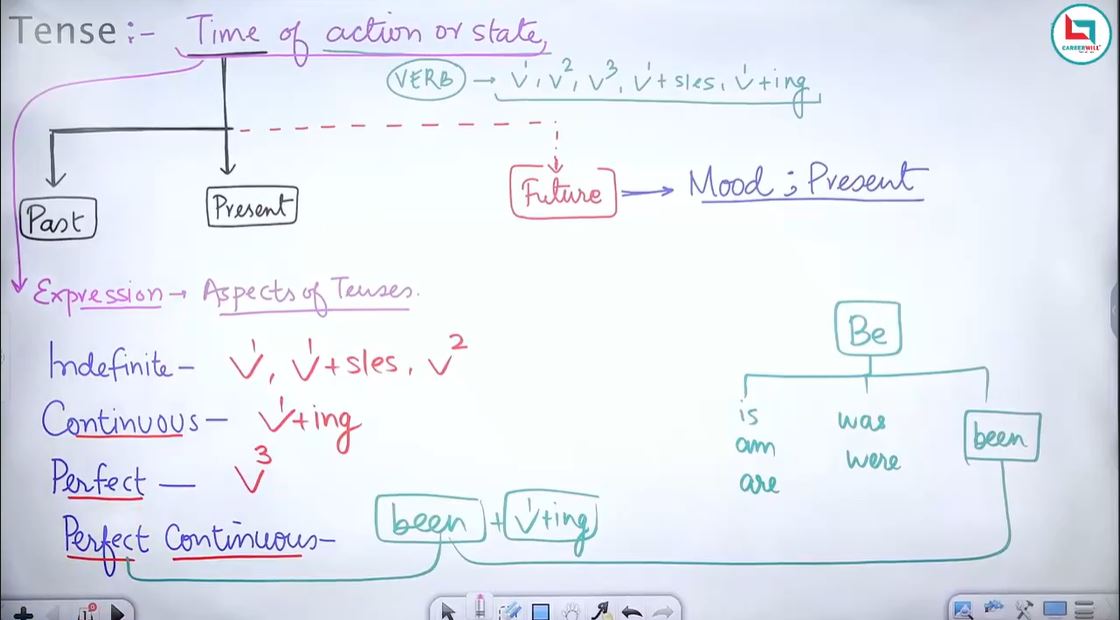 Tense :- Time of action or state,
CAREERWILL
VERB → V¹, V², V³, V¹+s/es, V¹+ing
Past
Present
Future → Mood ; Present
Expression → Aspects of Tenses.
Indefinite - V¹, V¹+s/es, V²
Continuous - V¹+ing
Perfect - V³
Perfect Continuous- been + V¹+ing
Be
is
am
are
was
were
been